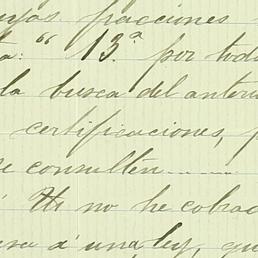 fracciones
"13ª por tod
la busca del anteri
certificaciones, p
se consultén
no he cobrad
a una ley, qu